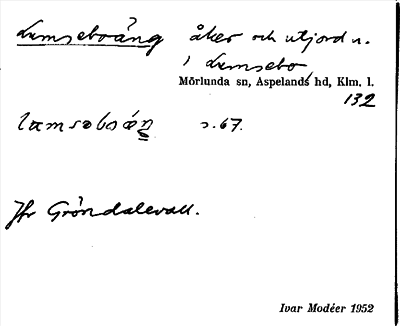 Lumseboäng åker och utjord u.
i Lumsebo
Mörlunda sn, Aspelands hd, Klm. l.
132
s. 67.
Jfr Gröndalevall.
Ivar Modéer 1952